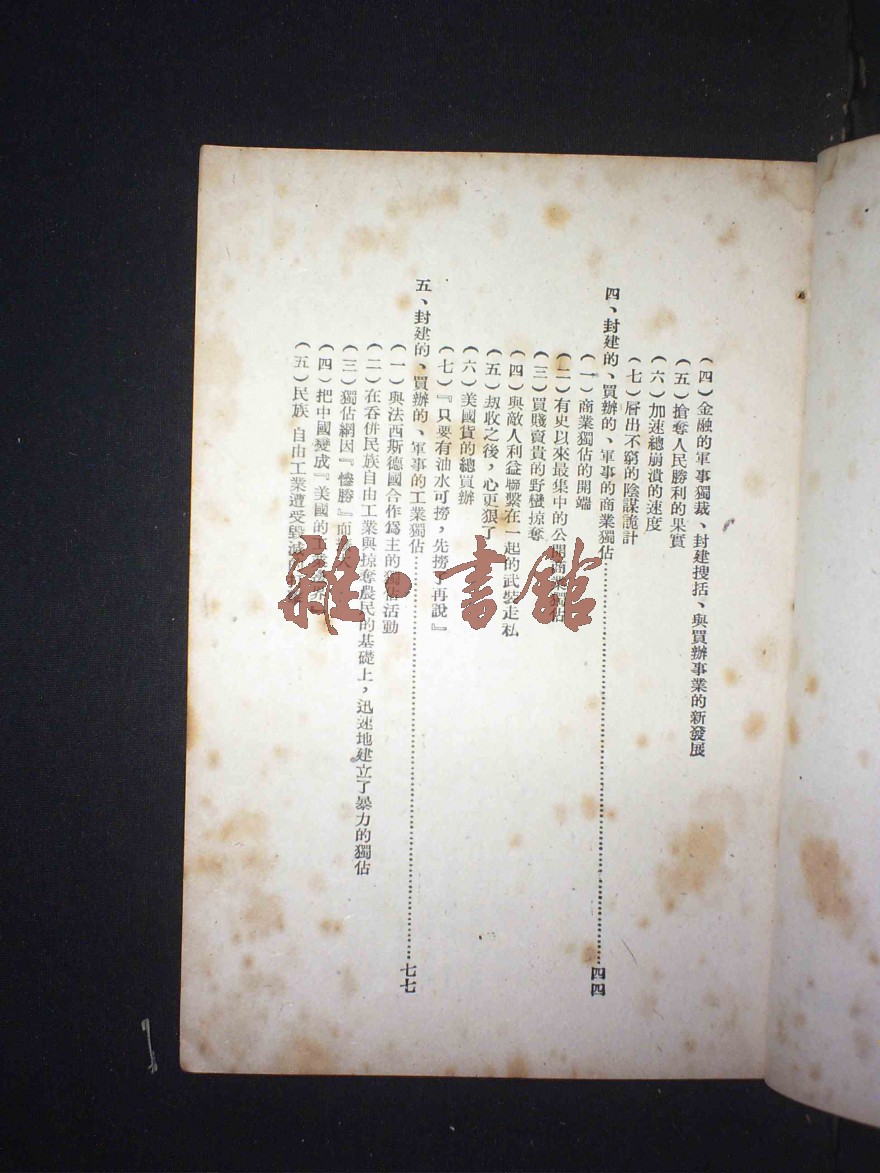 (四)金融的軍事獨裁、封建搜括、與買辦事業的新發展
(五)搶奪人民勝利的果實
(六)加速總崩潰的速度
(七)層出不窮的陰謀詭計
四、封建的、買辦的、軍事的商業獨佔……四四
(一)商業獨佔的開端
(二)有史以來最集中的公開商業獨佔
(三)買賤賣貴的野蠻掠奪
(四)與敵人利益聯繫在一起的武裝走私
(五)刼收之後，心更狠了
(六)美國貨的總買辦
(七)『只要有油水可撈，先撈了再說』
五、封建的、買辦的、軍事的工業獨佔……七七
(一)與法西斯德國合作爲主的獨佔活動
(二)在吞併民族自由工業與掠奪農民的基礎上，迅速地建立了暴力的獨佔
(三)獨佔網因『慘勝』而
(四)把中國變成『美國的工業
(五)民族自由工業遭受毀滅
雜·書館